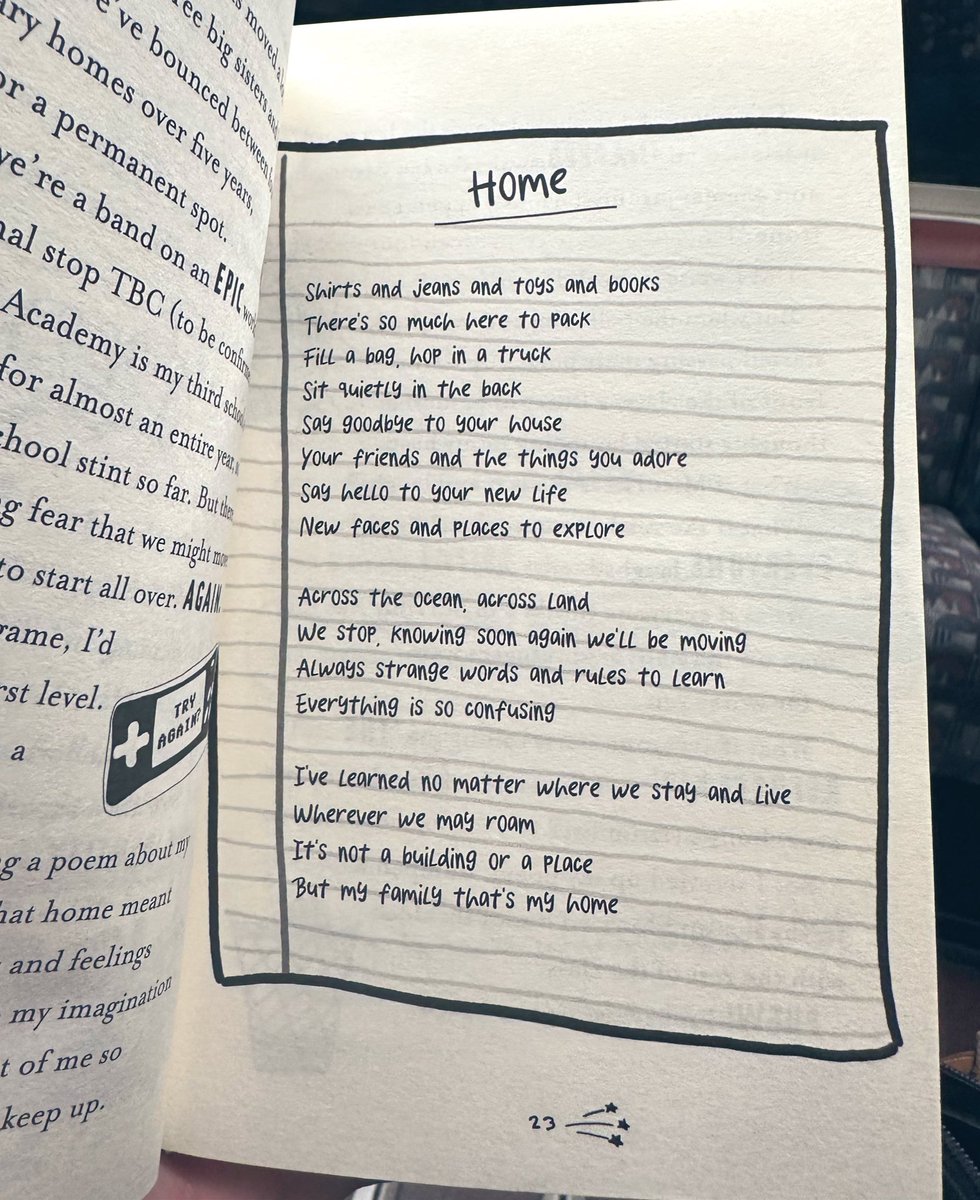 moved
ree big sisters and
've bounced between
ary homes over five years,
or a permanent spot.
we're a band on an EPIC
nal stop TBC (to be
Academy is my third
for almost an entire year,
chool stint so far. But
ng fear that we might
to start all over. AGAIN.
game, I'd
rst level.
TRY
AGAIN?
a
ng a poem about my
hat home meant
and feelings
my imagination
t of me so
keep up.
Home
Shirts and jeans and toys and books
There's so much here to pack
Fill a bag, hop in a truck
Sit quietly in the back
Say goodbye to your house
Your friends and the things you adore
Say hello to your new life
New faces and places to explore
Across the ocean, across land
We stop, knowing soon again we'll be moving
Always strange words and rules to learn
Everything is so confusing
I've learned no matter where we stay and live
Wherever we may roam
It's not a building or a place
But my family that's my home
23